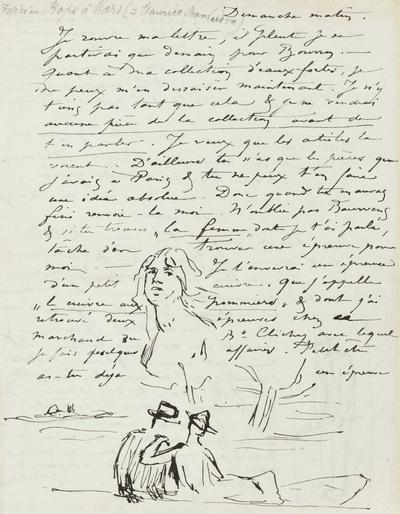 Félicien Rops à Mars (= Maurice Bonvoisin)
Dimanche matin.
Je rouvre ma lettre, il pleut je ne
partirai que demain pour Bourron. —
Quant à ma collection d'eaux-fortes, je
ne peux m'en dessaisir maintenant. Je n'y
tiens pas tant que cela & je ne vendrai
aucune pièce de la collection avant de
t'en parler. Je veux que les artistes la
voient. D'ailleurs tu n'as que les pièces que
j'avais à Paris & tu ne peux t'en faire
une idée absolue. Donc quand tu auras
fini renvoie-la moi. N'oublie pas
& si tu trouves „la femme dont je t'ai parlé,
tâche d'en trouver une épreuve pour
moi. — Je t'enverrai un épreuve
d'un petit cuivre que j'appelle
„le cuivre aux pommiers„ & dont j'ai
retrouvé deux épreuves chez
marchand du Bd Clichy avec lequel
je fais quelques affaires. Peut être
as-tu déjà un épreuve